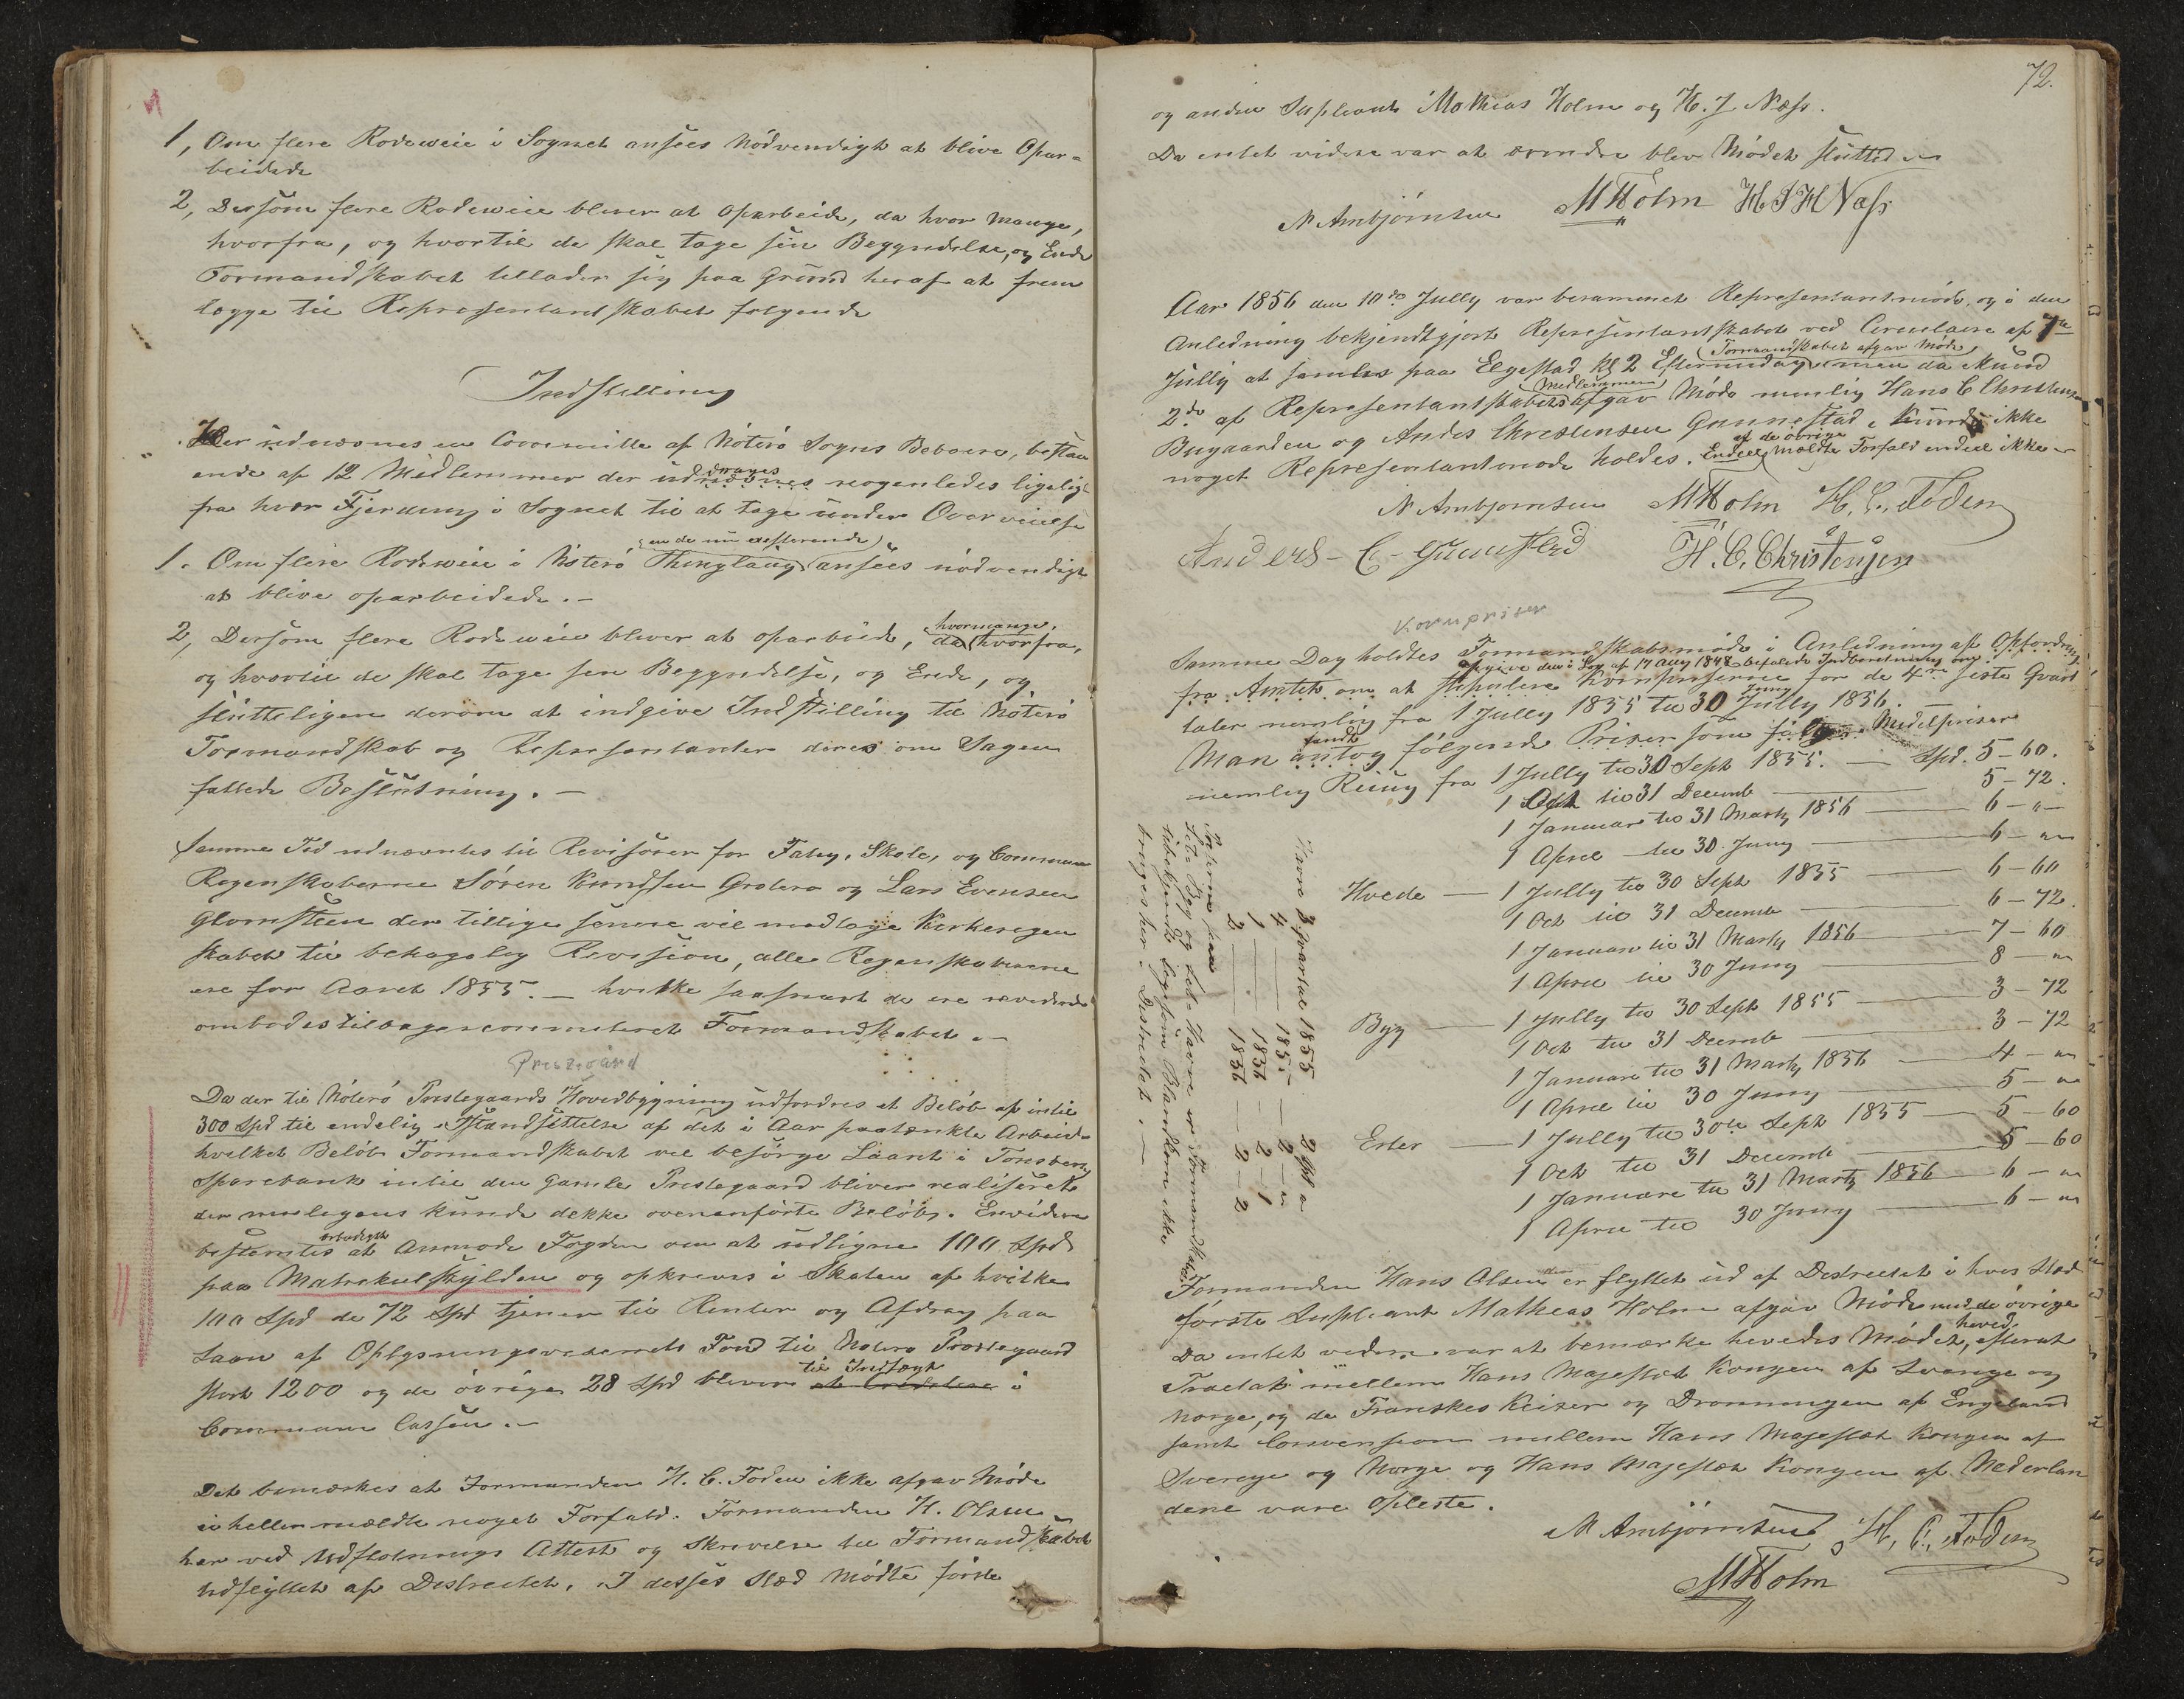 1, Om flere Rodeweie i Sognet ansees Nödvendigt at blive Opar-
beidede
2, Dersom flere Rodeweie bliver at Oparbeide, da hvor mange,
hvorfra, og hvortil de skal tage sin Begyndelse, og Ende
Formandskabet tillader sig paa Grund heraf at frem
lægge til Repræsentantskabet følgende
Indstilling
Her udnævnes en Committe af Nöterö Sogns Beboere, bestaa
ende af 12 Medlemmer der uddrages nogenledes ligeligt
fra hver Fjerding i Sognet til at tage under Overveielse
1. Om flere Rodeweie i Nöterö Thinglaug (en de nu existerende) ansees nödvendigt
at blive oparbeidede.-
2, Dersom flere Rodeweie bliver at oparbeide, da hvormange, hvorfra,
og hvortil de skal tage sin Begyndelse, og Ende, og
slutteligen derom at indgive Indstilling til Nöterö
Formandskab og Repræsentanter deres om Sagen
fattede Beslutning.-
Samme Tid udnævntes til Revisorer for Fattig, Skole, og Commune
Regenskaberne Sören Knudsen Grotero og Lars Evensen
Glomsteen der tillige senere vil modtage Kirkeregen
skabet til behagelig Revision, alle Regenskaberne
ere for Aaret 1855.- hvilke saasnart de ere reviderede
ombedes tilbagesendt Formandskabet.-
Prestegård
Da der til Nöterö Præstegaards Hovedbygning udfordres et Belöb af intil
300 Spd til endelig Istandsettelse af det i Aar paatænkte Arbeide
hvilket Belöb Formandskabet vil besörge Laant i Tonsberg
Sparebank intil den gamle Prestegaard bliver realiseret
der muligens kunde dekke ovenanförte Belöb. Envidere
bestemtes at erbødigst Anmode Fogden om at udligne 100 Spd
paa Matrekulskylden og opkreves i Skaten af hvilke
100 Spd de 72 Spd tjener til Renter og Afdrag paa
Laan af Oplysningsvesenets Fond til Nöterö Præstegaard
stort 1200 og de övrige 28 Spd bliver til Indtægt i
Commune Cassen.-
Det bemærkes at Formanden H. C. Foden ikke afgav Möde
ei heller meldte noget Forfald. Formanden H. Olsen
har ved Udflytnings Attest og Skrivelse til Formandskabet
udflyttet af Destrectet. I desses Sted Mödte förste
72.
og anden Supleant Mathias Holm og H. J Næss.
Da entet videre var at erindre blev Mödet sluttet.-
N Ambjörnsen M Holm H J H Næss
Aar 1856 den 10de Jully var beramenet Repræsentantmöde, og i den
Anledning bekjendtgjort Repræsentantskabet ved Circulaire af 7de
Jully at samles paa Elgestad Kl 2 Eftermiddag (Formandskabet afgav Möde) men da kund
2de af Repræsentantskabets Medlemmer afgav Möde nemlig Hans C Christensen
Bugaarden og Andes Christensen Gunnestad, kunde ikke
noget Repræsentantmöde holdes. Endeel af de övrige mældte Forfald endeel ikke.-
N Ambjornsen M Holm H. C. Foden
Anders - C - Gunnestad H. C. Christensen
Kornpriser
Samme Dag holdtes Formandskabsmöde i Anledning af Opfordring
fra Amtet om at opgive den i Lov af 17 Aug 1848 befalede Indberetning om stipulere Kornpriserne for de 4re siste Qvart
taler nemlig fra 1 Jully 1855 til 30 Juny Jully 1856.
Man fandt antog fölgende Priser som fölger Medelpriser
nemlig Rüug fra 1 Jully til 30 Sept 1855. — Spd. 5-60.
1 Oct til 31 Decemb — 5-72.
1 Januar til 31 Marty 1856 — 6-"-
1 April til 30 Juny — 6-"
Hvede — 1 Jully til 30 Sept 1855 — 6-60
1 Oct til 31 Decemb — 6-72.
1 Januar til 31 Marty 1856 — 7-60
1 April til 30 Juny — 8-"
Byg — 1 Jully til 30 Sept 1855 — 3-72
1 Oct til 31 Decemb — 3-72
1 Januar til 31 Marty 1856 — 4-"
1 April til 30 Juny — 5-"
Erter — 1 Jully til 30te Sept 1855 — 5-60
1 Oct til 31 Decemb — 5-60
1 Januar til 31 Marty 1856 — 6-"
1 April til 30 Juny — 6-"
Havre 3 qvartal 1855 — 2
4 — 1855 — 2 - "
1 — 1856 — 2 - 1
2 — 1856 — 2 - 2
Priserne paa
Byg og Havre er Formandskabet
ubekjendt ligesom Blandkorn ikke
bruges her i Destrectet.-
Formanden Hans Olsen er flyttet ud af Destrectet i hvis Sted
förste Supleant Mathias Holm afgav Möde med de övrige
Da entet videre var at bemærke hevedes Mödet, efterat
Tractat mellem Hans Majestæt Kongen af Sverige og
Norge, og de Franskes Keiser og Dronningen af Engeland
samt Convension mellem Hans Majestæt Kongen af
Sverrige og Norge og Hans Majestæt Kongen af Nederlan
dene vare opleste.
N Ambjörnsen H. C. Foden
M Holm